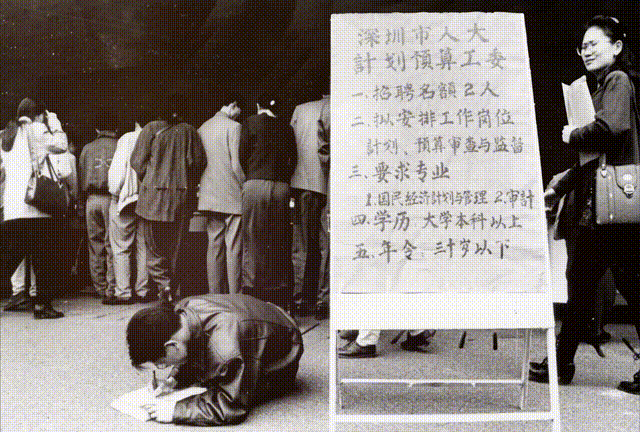 深圳市人大
計划預算工委
一.招聘名額2人
二.拟安排工作岗位
計划、預算审查与监督
三.要求专业
1.国民经济計划与管理 2.审計
四.学历 大学本科以上
五.年令:三十岁以下